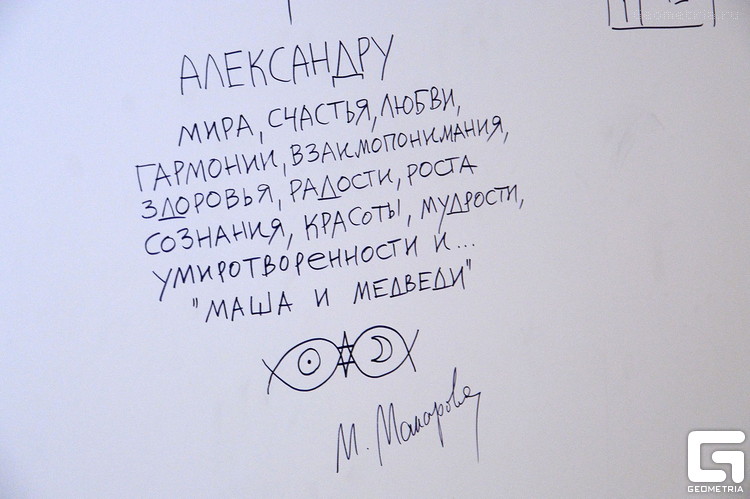 АЛЕКСАНДРУ
МИРА, СЧАСТЬЯ, ЛЮБВИ,
ГАРМОНИИ, ВЗАИМОПОНИМАНИЯ,
ЗДОРОВЬЯ, РАДОСТИ, РОСТА
СОЗНАНИЯ, КРАСОТЫ, МУДРОСТИ,
УМИРОТВОРЕННОСТИ И...
"МАША И МЕДВЕДИ"
М. Макарова
GEOMETRIA